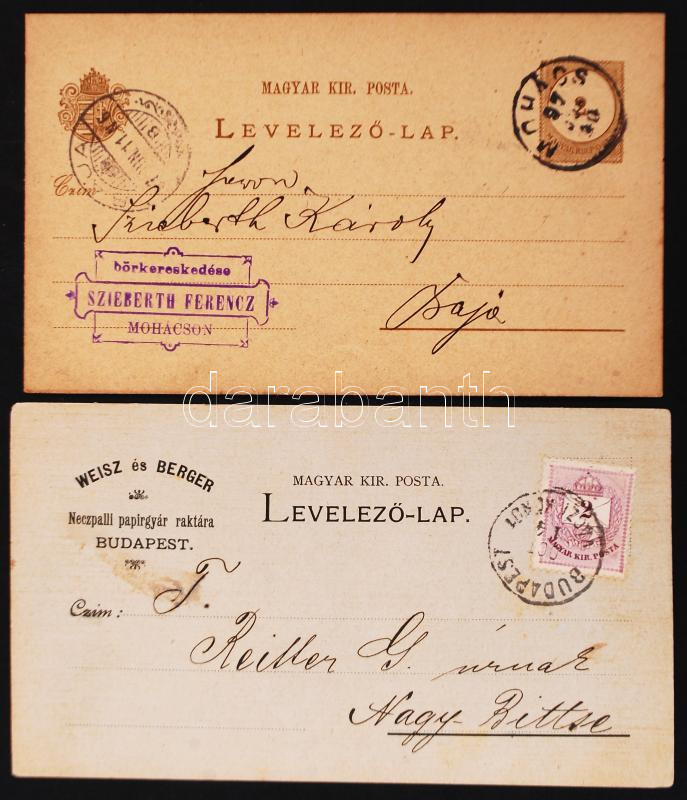 MAGYAR KIR. POSTA.
LEVELEZŐ-LAP.
MOHÁCS
97
BAJA
Czim:
Szieberth Károly
Baja
börkereskedése
SZIEBERTH FERENCZ
MOHÁCSON
darabanth
WEISZ és BERGER
Neczpalli papirgyár raktára
BUDAPEST.
MAGYAR KIR. POSTA.
LEVELEZŐ-LAP.
2
MAGYAR KIR. POSTA
BUDAPEST
Czim:
T.
Reitter G. úrnak
Nagy-Bittse